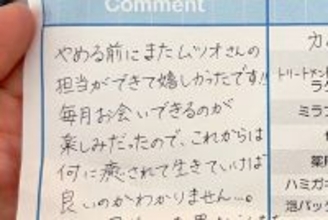 Comment
やめる前にまたムツオさんの
担当ができて嬉しかったです!!
毎月お会いできるのが
楽しみだったので、これからは
何に癒されて生きていけば
良いのかわかりません…。
トリートメント
ミラブ
ハミガキ
泡パック